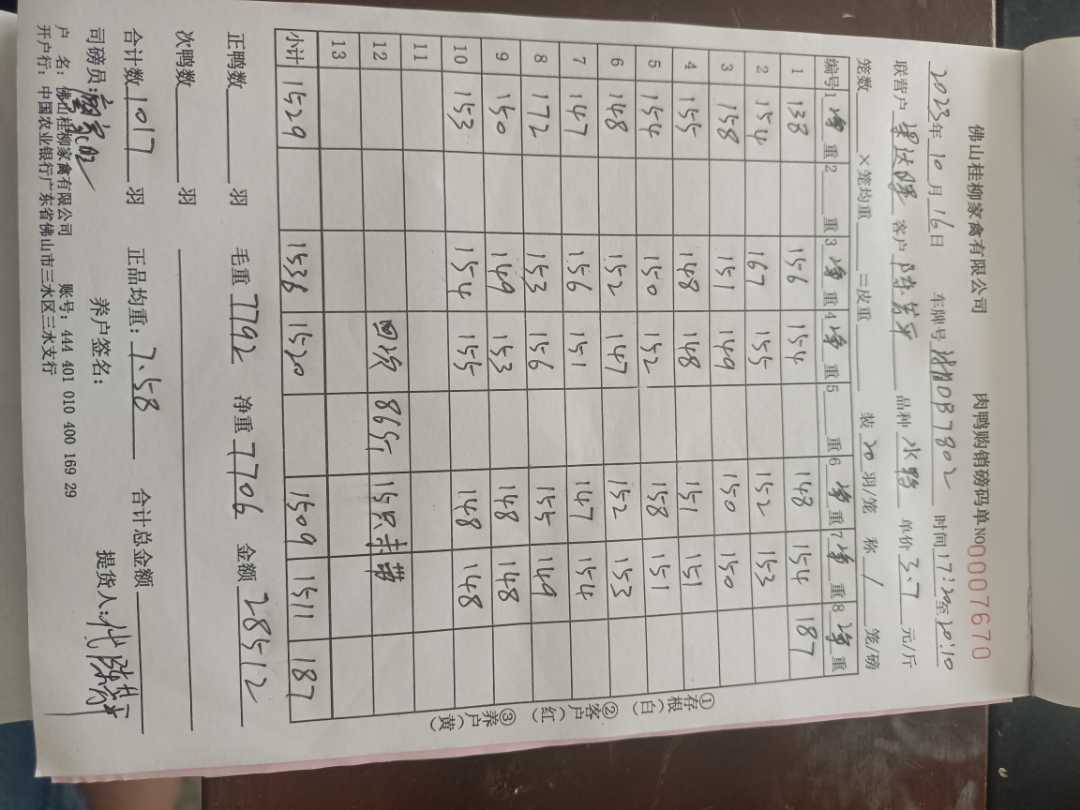 佛山桂柳家禽有限公司 肉鸭购销磅码单 NO 00007670
2023年10月16日 车牌号 0B7802 时间17:20至20:10
联营户 客户 陈 平 品种 水鸭 单价 3.7 元/斤
笼数 ×笼均重 =皮重 装 20 羽/笼 称 1 笼/磅
编号 1净重 2 重 3净重 4净重 5 重 6净重 7净重 8净重
1 138 156 154 148 154 187
2 154 167 155 152 153
3 158 151 149 150 150
4 155 148 148 151 151
5 154 150 152 158 151
6 148 152 147 152 153
7 147 156 151 147 154
8 172 153 156 155 149
9 150 149 153 148 148
10 153 154 155 148 148
11
12 865 15只
13
小计 1529 1536 1520 1509 1511 187
正鸭数 羽 毛重 7792 净重 7706 金额 28512
次鸭数 羽
合计数 1017 羽 正品均重: 7.58 合计总金额
司磅员: 养户签名: 提货人:
户 名: 佛山桂柳家禽有限公司 账号: 444 401 010 400 169 29
开户行: 中国农业银行广东省佛山市三水区三水支行
①存根(白) ②客户(红) ③养户(黄)